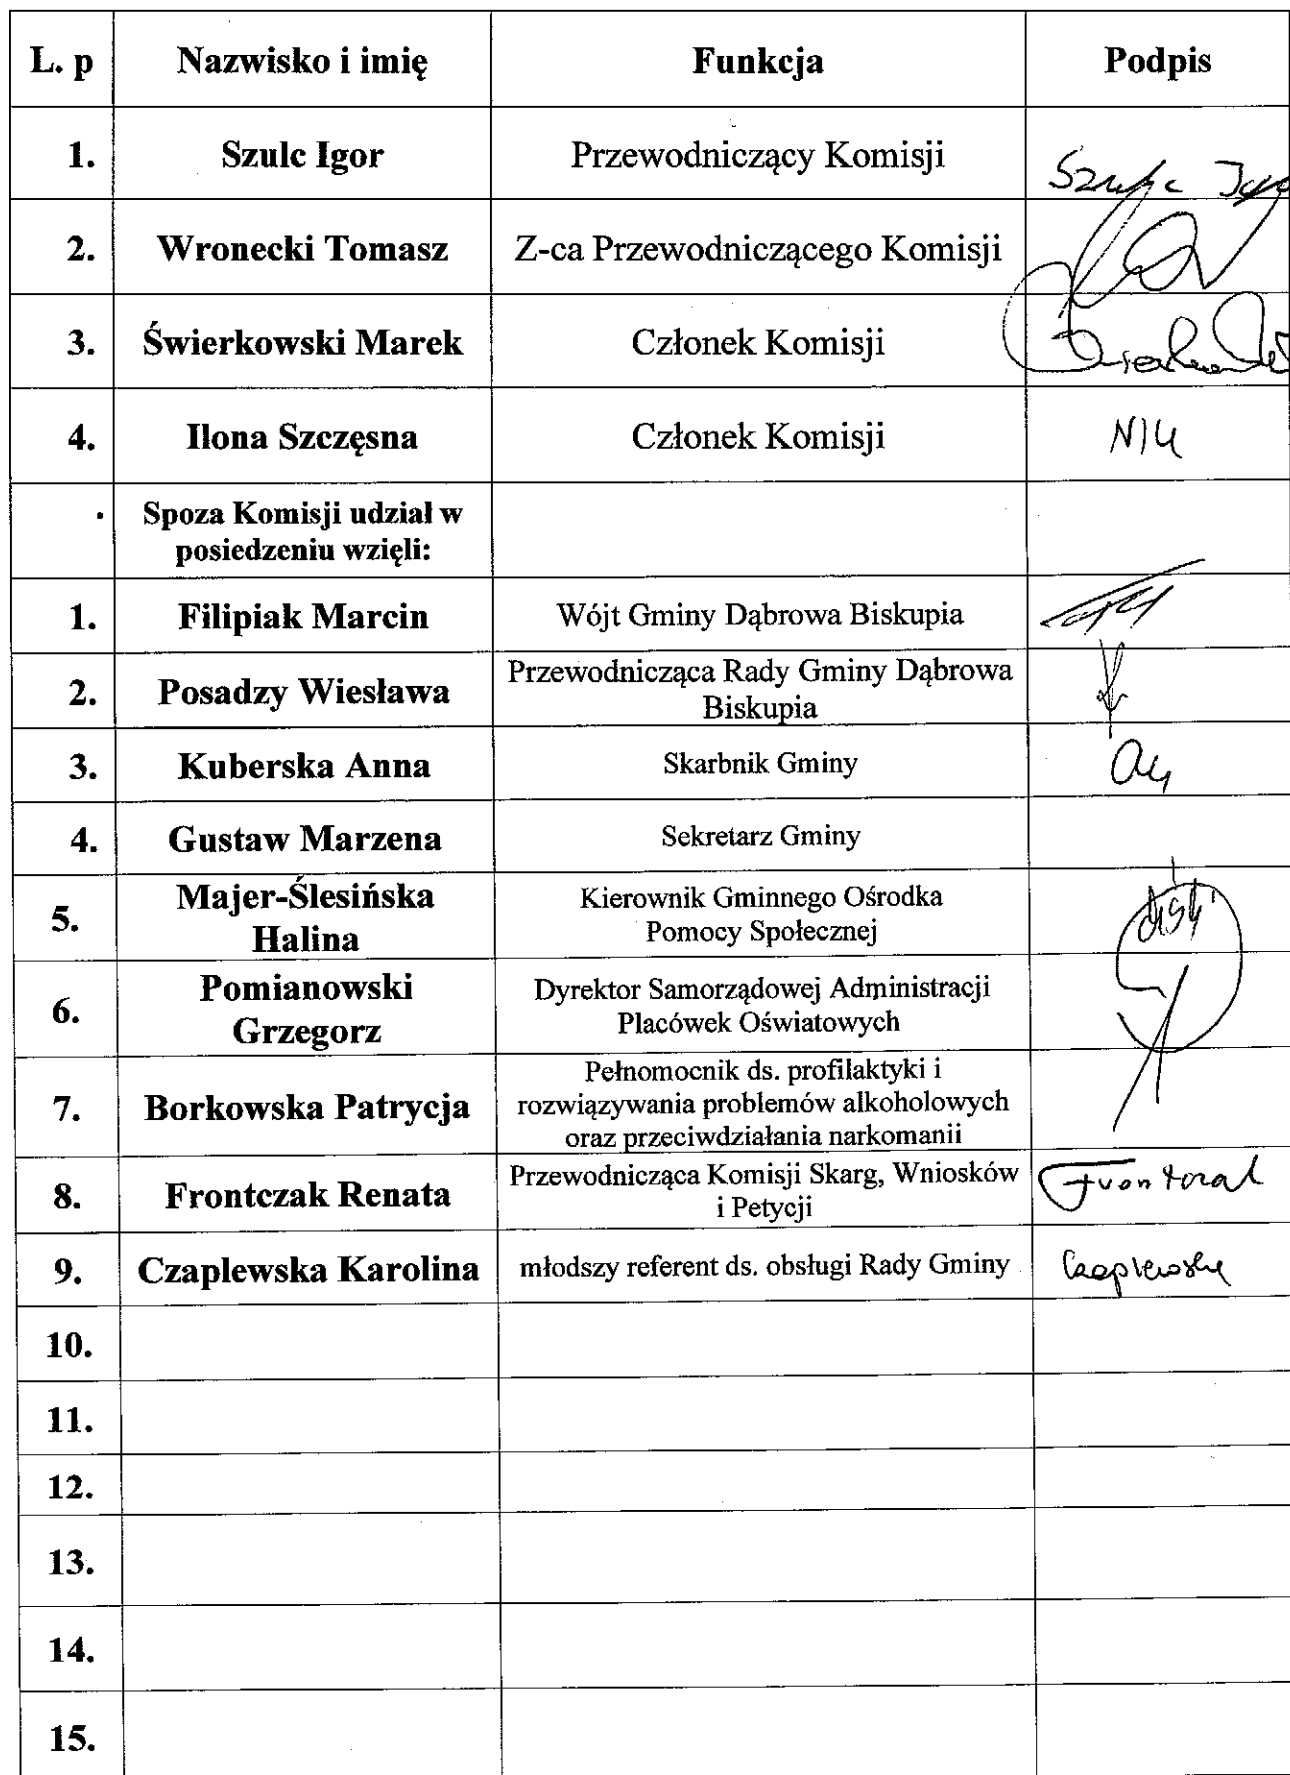 L. p Nazwisko i imię Funkcja Podpis
1. Szulc Igor Przewodniczący Komisji Szulc Igor
2. Wronecki Tomasz Z-ca Przewodniczącego Komisji
3. Świerkowski Marek Członek Komisji
4. Ilona Szczęsna Członek Komisji
. Spoza Komisji udział w
posiedzeniu wzięli:
1. Filipiak Marcin Wójt Gminy Dąbrowa Biskupia
2. Posadzy Wiesława Przewodnicząca Rady Gminy Dąbrowa
Biskupia
3. Kuberska Anna Skarbnik Gminy
4. Gustaw Marzena Sekretarz Gminy
5. Majer-Ślesińska
Halina
Kierownik Gminnego Ośrodka
Pomocy Społecznej
6. Pomianowski
Grzegorz
Dyrektor Samorządowej Administracji
Placówek Oświatowych
7. Borkowska Patrycja Pełnomocnik ds. profilaktyki i
rozwiązywania problemów alkoholowych
oraz przeciwdziałania narkomanii
8. Frontczak Renata Przewodnicząca Komisji Skarg, Wniosków
i Petycji
9. Czaplewska Karolina młodszy referent ds. obsługi Rady Gminy
10.
11.
12.
13.
14.
15.